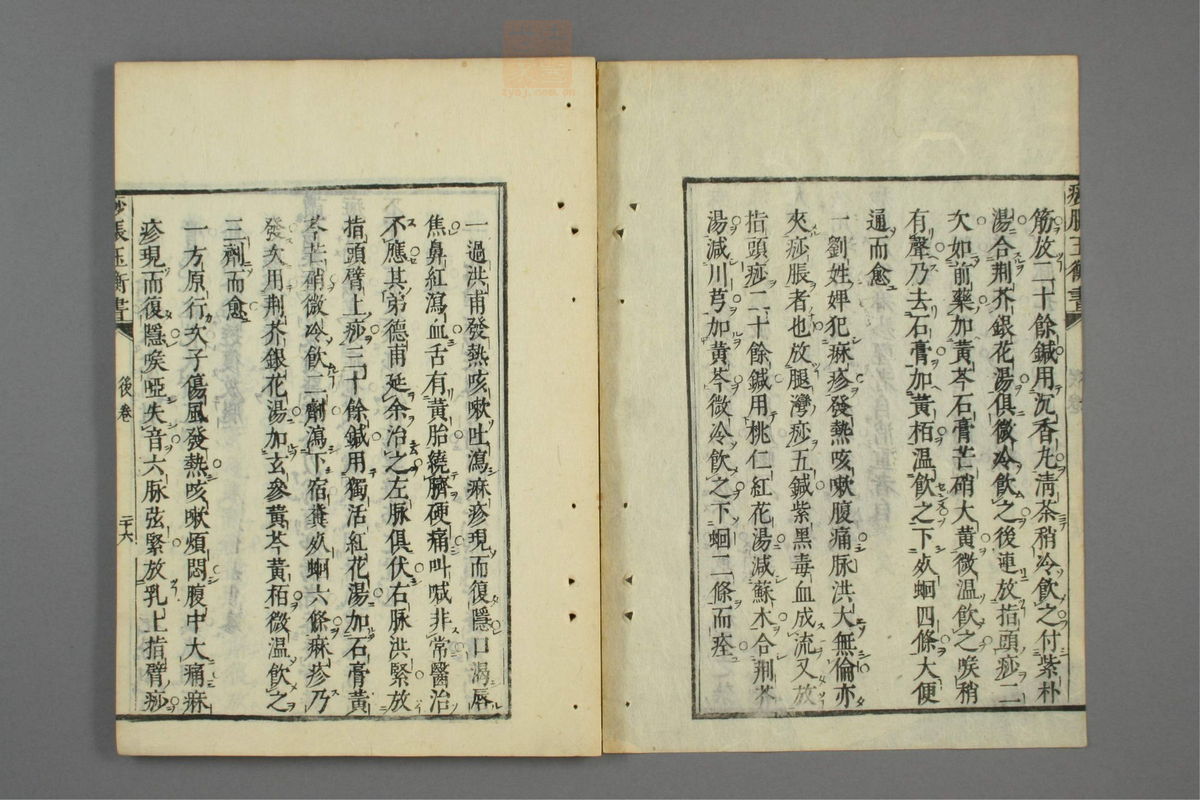 痧脹玉衡書
筋放二十餘鍼用沉香丸清茶稍冷飲之付紫朴
湯合荆芥銀花湯俱微冷飲之後連放指頭痧二
次如前藥加黃芩石膏芒硝大黃微温飲之喉稍
有聲乃去石膏加黃栢温飲之下死蛔四條大便
通而愈
一劉姓婢犯痳疹發熱咳嗽腹痛脉洪大無倫亦
夾痧脹者也放腿灣痧五鍼紫黑毒血成流又放
指頭痧二十餘鍼用桃仁紅花湯減蘇木合荆芥
湯減川芎加黃芩微冷飲之下蛔二條而痊
一過洪甫發熱咳嗽吐瀉痳疹現而復隱口渴唇
焦鼻紅瀉血舌有黃胎繞臍硬痛叫喊非常醫治
不應其弟德甫延余治之左脉俱伏右脉洪緊放
指頭臂上痧三十餘鍼用獨活紅花湯加石膏黃
芩芒硝微冷飲二劑瀉下宿糞死蛔六條痳疹乃
發次用荆芥銀花湯加玄參黃芩黃栢微温飲之
三劑而愈
一方原行次子傷風發熱咳嗽煩悶腹中大痛痳
疹現而復隱喉啞失音六脉弦緊放乳上指臂痧
痧脹玉衡書
後卷
二十六